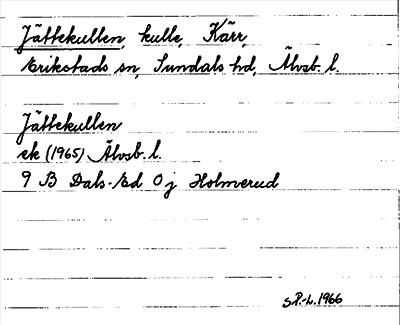 Jättekullen, kulle, Kärr,
Erikstads sn, Sundals hd, Älvsb. l.
Jättekullen
ek (1965) Älvsb. l.
9 B Dals-Ed 0 j Holmerud
S.P.-L. 1966